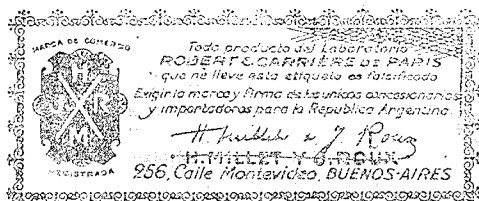 MARCA DE COMERCIO
H
J R
M
REGISTRADA
Todo producto del Laboratorio
ROBERT & CARRIÈRE DE PARIS
que no lleve esta etiqueta es falsificado
Exigir la marca y firma de los unicos concesionarios
y importadores para la Republica Argentina
H. Millet & J. Roux
H. MILLET Y J. ROUX
256, Calle Montevideo, BUENOS-AIRES